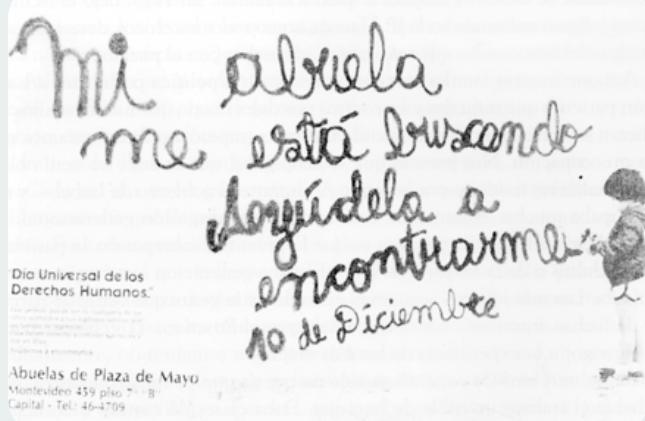 mi abuela
me está buscando
Ayúdela a
encontrarme
10 de Diciembre
Día Universal de los
Derechos Humanos.
Abuelas de Plaza de Mayo
Montevideo 459 piso 7º "B"
Capital - Tel.: 46-4709